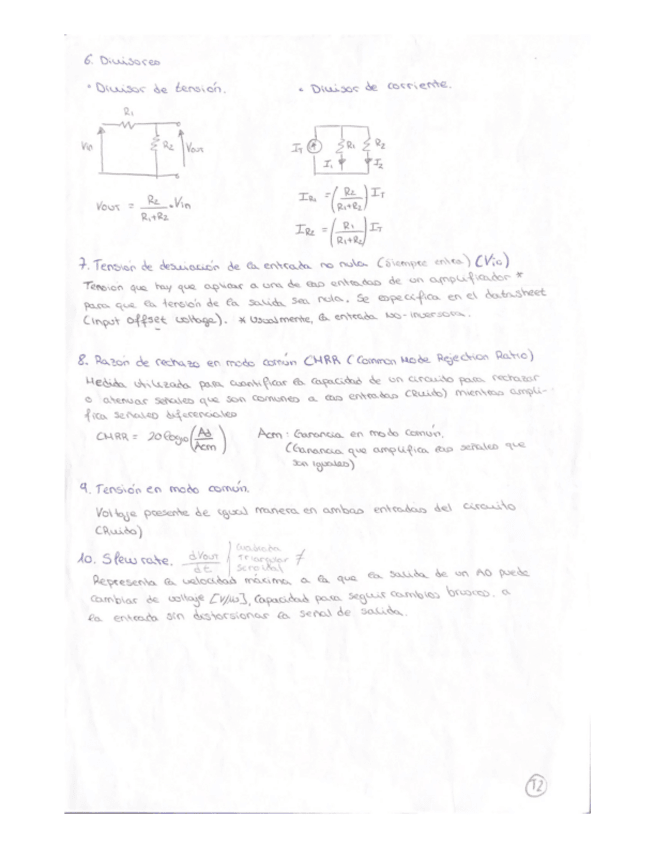 6. Divisores
• Divisor de tensión.
• Divisor de corriente.
R1
Vin
R2
Vout
IT
R1
R2
I1
I2
Vout = R2/(R1+R2) • Vin
IR1 = (R2/(R1+R2)) IT
IR2 = (R1/(R1+R2)) IT
7. Tensión de desviación de la entrada no nula (siempre entra) (Vio)
Tensión que hay que aplicar a una de las entradas de un amplificador *
para que la tensión de la salida sea nula. Se especifica en el datasheet
(input offset voltage). * Usualmente, la entrada no-inversora.
8. Razón de rechazo en modo común CMRR (Common Mode Rejection Ratio)
Medida utilizada para cuantificar la capacidad de un circuito para rechazar
o atenuar señales que son comunes a las entradas (Ruido) mientras ampli-
fica señales diferenciales
CMRR = 20log10(Ad/Acm)
Acm: Ganancia en modo común.
(Ganancia que amplifica las señales que
son iguales)
9. Tensión en modo común.
Voltaje presente de igual manera en ambas entradas del circuito
(Ruido)
10. Slew rate. dVout/dt
Cuadrada
Triangular ≠
Senoidal
Representa la velocidad máxima a la que la salida de un AO puede
cambiar de voltaje [V/us], Capacidad para seguir cambios bruscos a
la entrada sin distorsionar la señal de salida.
12